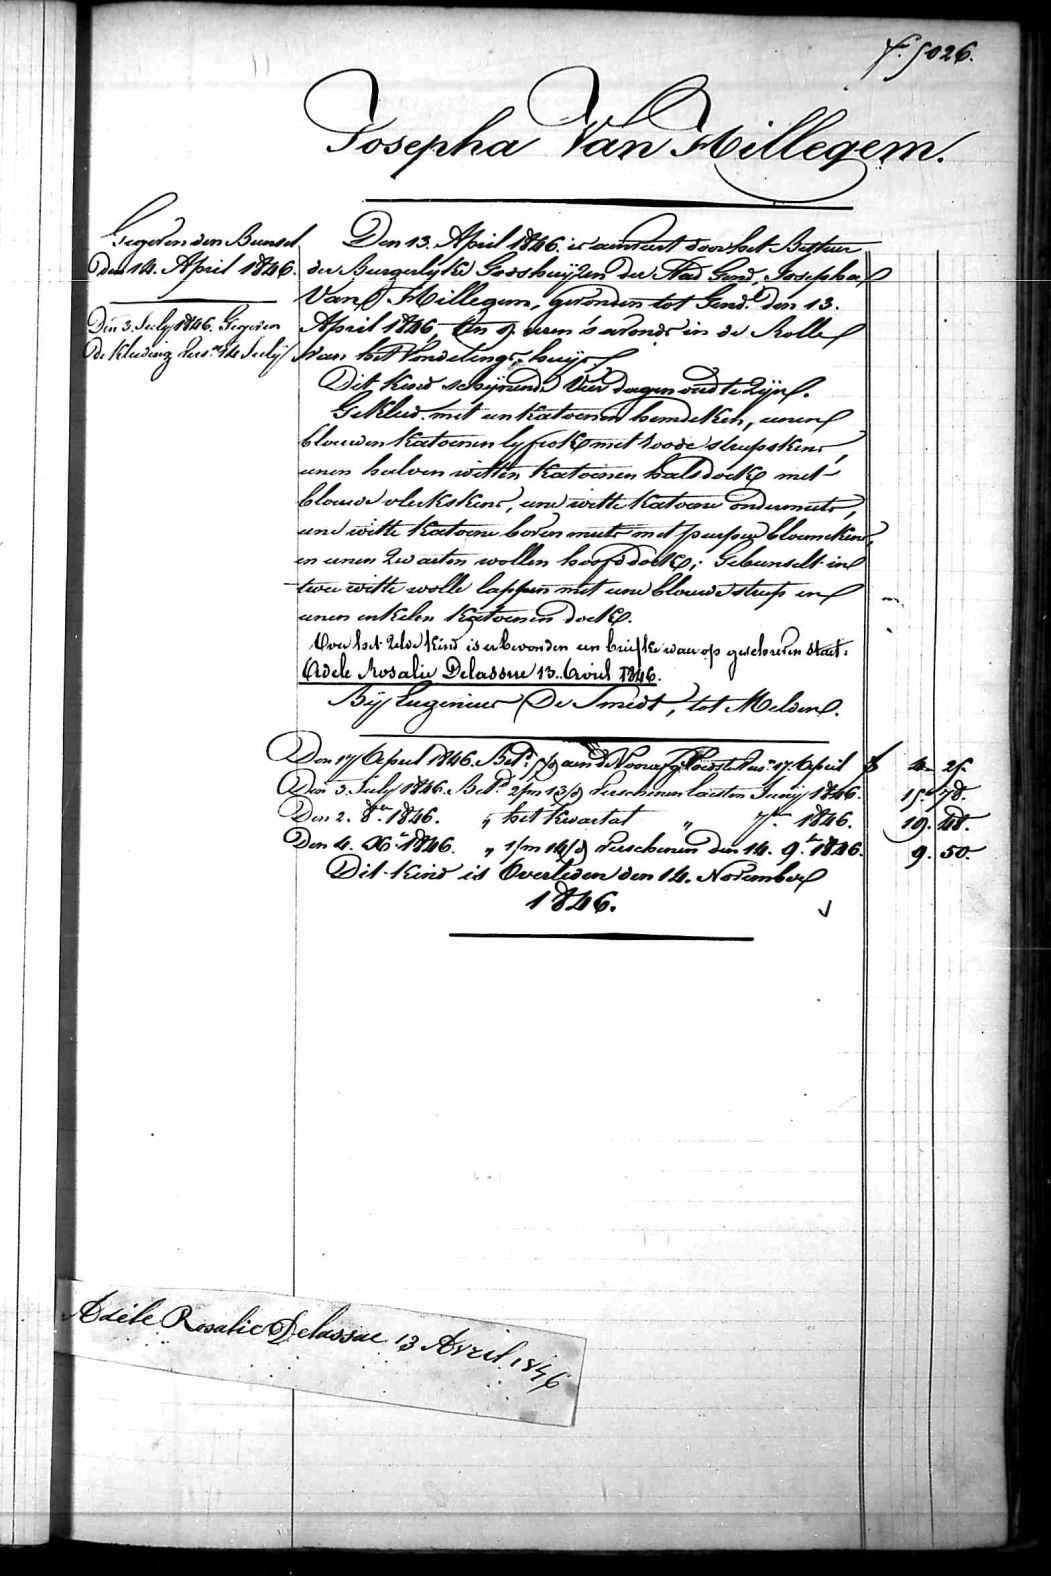 f. 5026.
Josepha Van Hillegem.
Gegeven den Bunsel
den 14. April 1846.
Den 3. July 1846. Gegeven
de Kleeding 14 July
Den 13. April 1846. is aenveert door het Bestuer
der Burgerlyke Godshuyzen der Stad Gend, Josepha
Van Hillegem, gevonden tot Gend den 13.
April 1846, ten 9 uren 's avonds in de Rolle
van het Vindelings-huys.
Dit kind schynende vier dagen oud te zyn.
Gekleed met een katoenen hemdeken, eenen
blauwen katoenen lyfrok met roode streepkens,
eenen halven witten katoenen halsdoek met
blauwe vlekskens, eene witte katoene ondermuts,
eene witte katoene bovenmuts met purper bloemekens,
en eenen zwarten wollen hoofddoek; Gebunselt in
twee witte wolle lappen met eene blauwe streep en
eenen enkelen katoenen doek.
Over het zelve kind is er bevonden een briefke waer op geschreven staet:
Adele Rosalie Delassue 13. Avril 1846.
By Eugenius De Smedt, tot Melden.
Den 17 April 1846. Bet. aen de Voorz. 17 April f 4. 25.
Den 3. July 1846. Bet. 2/m 13/d verschenen laesten Juny 1846. 15. 78.
Den 2. 8ber 1846. " het kwartael " 7ber 1846. 19. 48.
Den 4. Xbr 1846. " 1/m 14/d verschenen den 14. 9br 1846. 9. 50.
Dit kind is Overleden den 14. November
1846.
Adèle Rosalie Delassue 13 Avril 1846